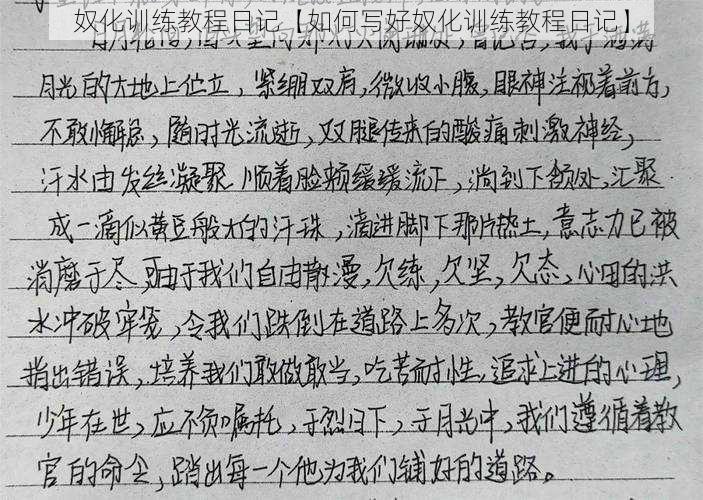 奴化训练教程日记【如何写好奴化训练教程日记】
月光的大地上伫立，紧绷双肩，微收小腹，眼神注视着前方，
不敢懈怠，随时光流逝，双腿传来的酸痛刺激神经，
汗水由发丝凝聚顺着脸颊缓缓流下，淌到下颌处，汇聚
成一滴似黄豆般大的汗珠，滴进脚下那片热土，意志力已被
消磨于尽，可由于我们自由散漫，欠练，欠坚，欠态，心田的洪
水冲破牢笼，令我们跌倒在道路上多次，教官便耐心地
指出错误，培养我们敢做敢当，吃苦耐性，追求上进的心理，
少年在世，应不负嘱托，于烈日下，于月光中，我们遵循着教
官的命令，踏出每一个他为我们铺好的道路。